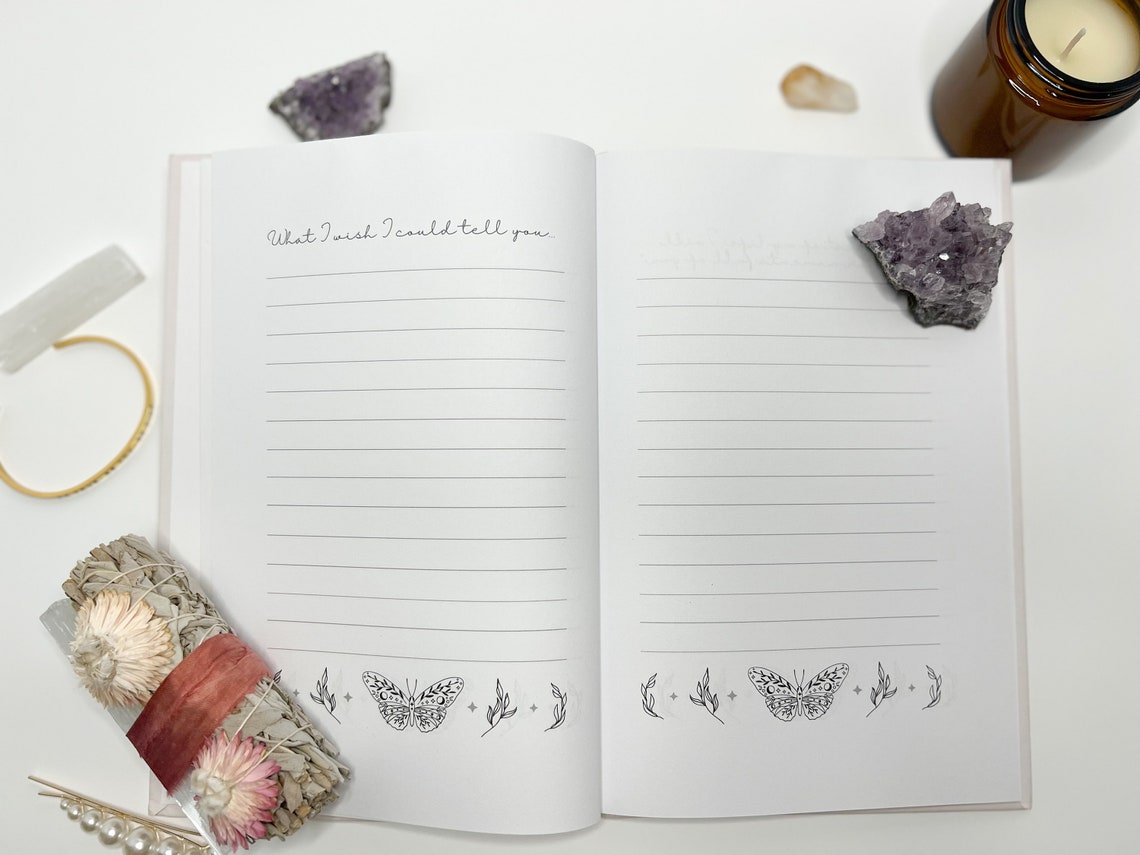 What I wish I could tell you...